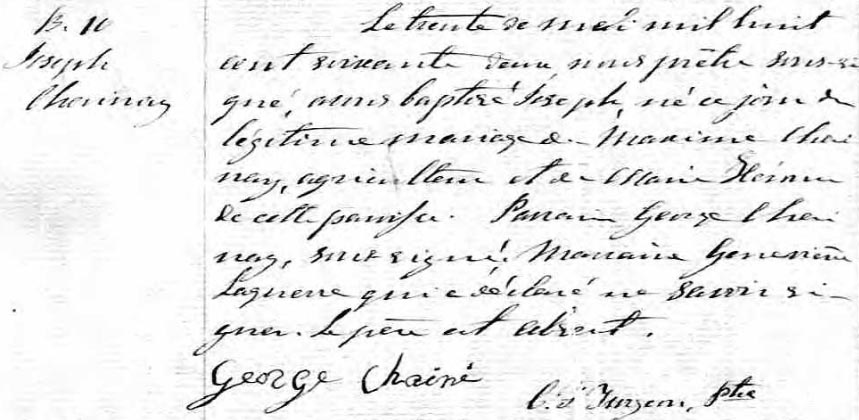 B. 10
Joseph
Chainay
Le trente de mai mil huit
cent soixante deux nous prêtre sous-si-
gné, avons baptisé Joseph, né ce jour du
légitime mariage de Maxime Chai
nay, agriculteur et de Marie
de cette paroisse. Parrain George Chai
nay, soussigné. Marraine Geneviève
Laguerre qui a déclaré ne savoir si-
gner. Le père est absent.
George Chainé
Ptre